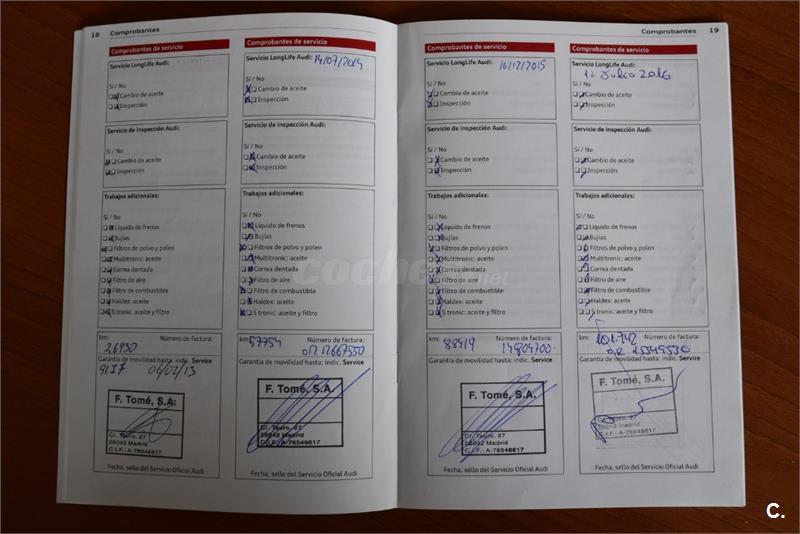 18 Comprobantes
Comprobantes de servicio
Servicio LongLife Audi:
Sí / No
Cambio de aceite
Inspección
Servicio de inspección Audi:
Sí / No
Cambio de aceite
Inspección
Trabajos adicionales:
Sí / No
Líquido de frenos
Bujías
Filtros de polvo y polen
Multitronic: aceite
Correa dentada
Filtro de aire
Filtro de combustible
Haldex: aceite
S tronic: aceite y filtro
km: Número de factura:
26930
Garantía de movilidad hasta: indic. Service
06/02/13
F. Tomé, S.A.
C/. Tauro, 27
28042 Madrid
C.I.F.: A-78548617
Fecha, sello del Servicio Oficial Audi
Comprobantes de servicio
Servicio LongLife Audi: 14/07/2014
Sí / No
Cambio de aceite
Inspección
Servicio de inspección Audi:
Sí / No
Cambio de aceite
Inspección
Trabajos adicionales:
Sí / No
Líquido de frenos
Bujías
Filtros de polvo y polen
Multitronic: aceite
Correa dentada
Filtro de aire
Filtro de combustible
Haldex: aceite
S tronic: aceite y filtro
km: 57754 Número de factura:
Garantía de movilidad hasta: indic. Service
F. Tomé, S.A.
C/. Tauro, 27
28042 Madrid
C.I.F.: A-78548617
Fecha, sello del Servicio Oficial Audi
Comprobantes 19
Comprobantes de servicio
Servicio LongLife Audi: 16/12/2015
Sí / No
Cambio de aceite
Inspección
Servicio de inspección Audi:
Sí / No
Cambio de aceite
Inspección
Trabajos adicionales:
Sí / No
Líquido de frenos
Bujías
Filtros de polvo y polen
Multitronic: aceite
Correa dentada
Filtro de aire
Filtro de combustible
Haldex: aceite
S tronic: aceite y filtro
km: 88919 Número de factura:
Garantía de movilidad hasta: indic. Service
F. Tomé, S.A.
C/. Tauro, 27
28042 Madrid
C.I.F.: A-78548617
Fecha, sello del Servicio Oficial Audi
Comprobantes de servicio
Servicio LongLife Audi:
12 Julio 2016
Sí / No
Cambio de aceite
Inspección
Servicio de inspección Audi:
Sí / No
Cambio de aceite
Inspección
Trabajos adicionales:
Sí / No
Líquido de frenos
Bujías
Filtros de polvo y polen
Multitronic: aceite
Correa dentada
Filtro de aire
Filtro de combustible
Haldex: aceite
S tronic: aceite y filtro
km: 101.742 Número de factura:
Garantía de movilidad hasta: indic. Service
F. Tomé, S.A.
C/. Tauro, 27
28042 Madrid
C.I.F.: A-78548617
Fecha, sello del Servicio Oficial Audi
coches.net
C.